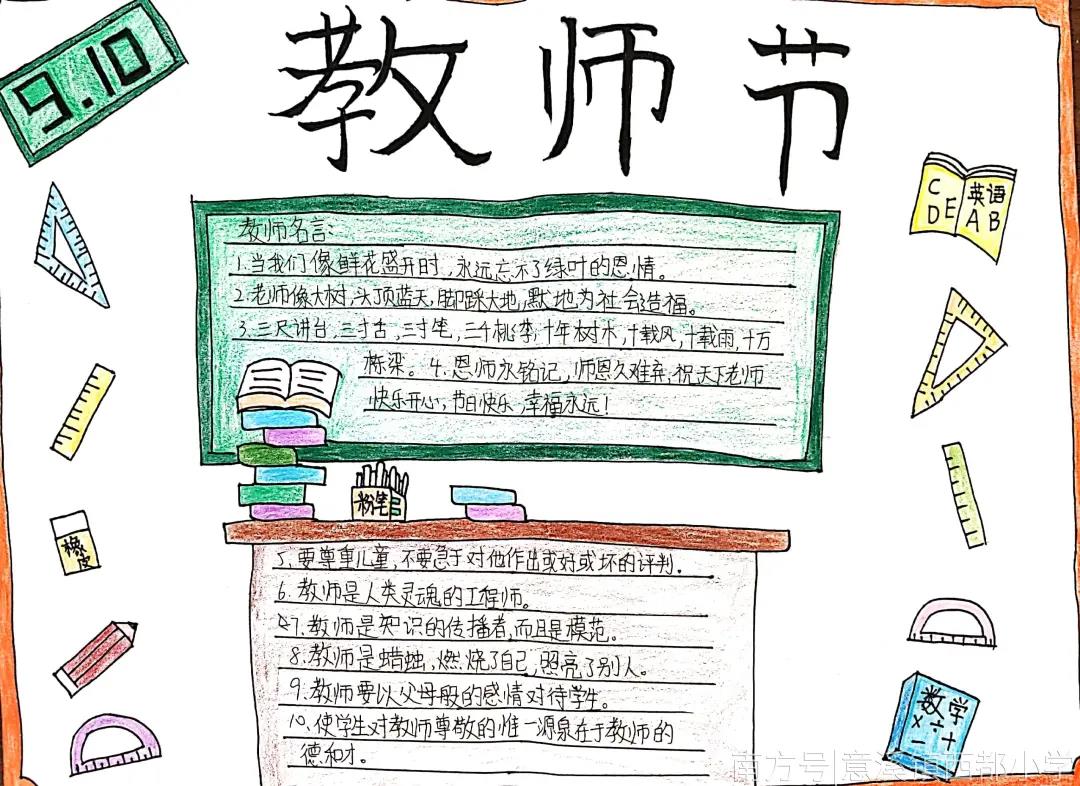 9.10
教师节
C D E 英语 A B
教师名言:
1.当我们像鲜花盛开时,永远忘不了绿叶的恩情。
2.老师像大树,头顶蓝天,脚踩大地,默地为社会造福。
3.三尺讲台,三寸舌,三寸笔,三千桃李,十年树木,十载风,十载雨,十万
栋梁。4.恩师永铭记,师恩久难弃,祝天下老师
快乐开心,节日快乐,幸福永远!
粉笔
橡皮
5.要尊重儿童,不要急于对他作出或好或坏的评判.
6.教师是人类灵魂的工程师。
7.教师是知识的传播者,而且是模范。
8.教师是蜡烛,燃烧了自己,照亮了别人。
9.教师要以父母般的感情对待学生。
10.使学生对教师尊敬的惟一源泉在于教师的
德和才。
数学
× ÷
- +
南方号|意溪镇西都小学